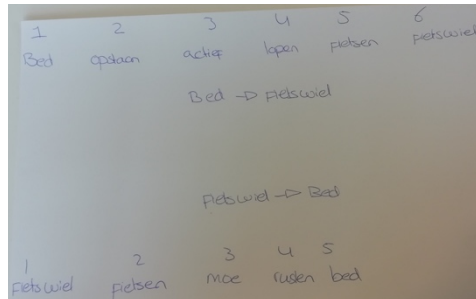 1 2 3 4 5 6
Bed opstaan actief lopen Fietsen Fietswiel
Bed -> Fietswiel
Fietswiel -> Bed
1 2 3 4 5
Fietswiel fietsen moe rusten bed